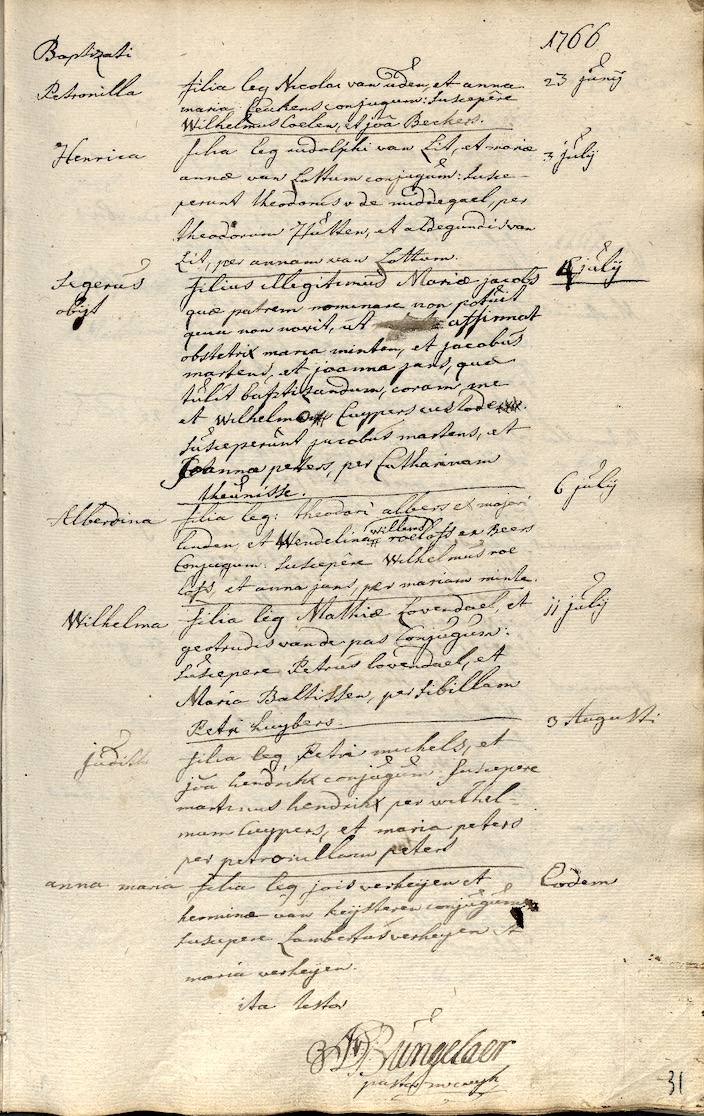 1766
Baptizati
Petronilla filia leg Nicolai van uden, et anna 23 junij
maria Ceukens conjugum: Suscepêre
Wilhelmus Coelen, et joâ Beckers.
Henrica filia leg rudolphi van Lit, et mariæ 3 julij
annæ van Lottum conjugum: Susce-
perunt theodorus v de middegael, per
theodorum Hutten, et aldegundis van
Lit, per annam van Lottum.
Segerus filius illegitimus Mariæ jacobs 4 julij
obijt quæ patrem nominare non potuit
quia non novit, ut affirmat
obstetrix maria minten, et jacobus
martens, et joanna jans, quæ
tulit baptizandum, coram me
et Wilhelmo Cuypers custode.
Susceperunt jacobus martens, et
Joanna peters, per Catharinam
theunisse.
Alberdina filia leg: theodori albers ex majori 6 julij
linden, et Wendelina willems roeloffs ex Beers
Conjugum. Suscepêre Wilhelmus roe-
loffs, et anna jans, per mariam minte.
Wilhelma filia leg Mathiæ Lovendael, et 11 julij
geotrudis vande pas Conjugum:
Suscepere Petrus lovendael, et
Maria Baltissen, per Sibillam
Petri Luybers.
judith filia leg, Petri michels, et 3 Augusti
joâ hendrikx conjugum. Suscepere
martinus hendrikx per wilhel-
mum Cuypers, et maria peters
per petronillam peters
anna maria filia leg jois verheijen et Eodem
herminæ van keijsteren conjugum
Suscepere Lambertus verheyen et
maria verheijen.
ita testor
Bungelaer
pastor
31